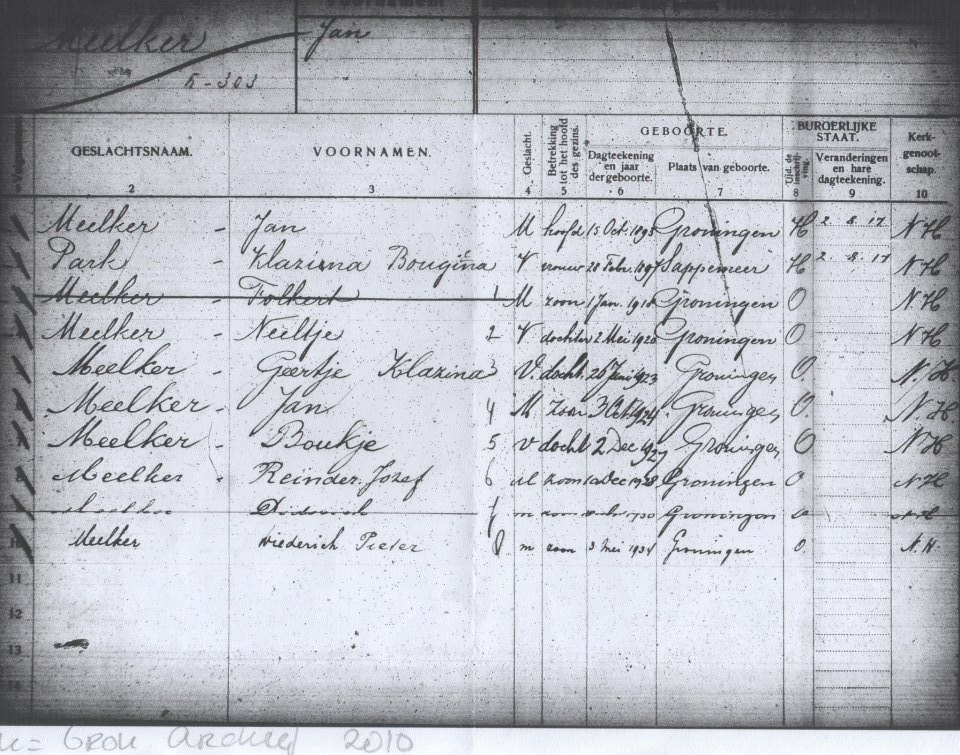 Meelker Jan
K-303
GESLACHTSNAAM. VOORNAMEN. Geslacht. Betrekking tot het hoofd des gezins. GEBOORTE. BURGERLIJKE STAAT. Kerk-genoot-schap.
Dagteekening en jaar der geboorte. Plaats van geboorte. Veranderingen en hare dagteekening.
2 3 4 5 6 7 8 9 10
Meelker - Jan M hoofd 15 Oct. Groningen H 2 8 17 NH
Park - Klazina V vrouw 28 Febr. 1897 Sappemeer H 2. 8. 17 NH
Meelker - Folkert 1 M zoon 1 Jan. Groningen O NH
Meelker - Neeltje 2 V dochter 2 Mei 1920 Groningen O NH
Meelker - Geertje Klazina 3 V. docht. 26 Juni 1923 Groningen O. N.H.
Meelker - Jan 4 M. zoon 3 Oct. 1924 Groningen O. NH
Meelker - Boukje 5 V docht 2 Dec 1927 Groningen O NH
Meelker - Reinder Jozef 6 M zoon Dec 1928 Groningen O NH
m zoon 1930 Groningen NH
Meelker Diederich Pieter 8 m zoon 3 Mei Groningen O. N.H.
11
12
13
14
Gron Archief 2010